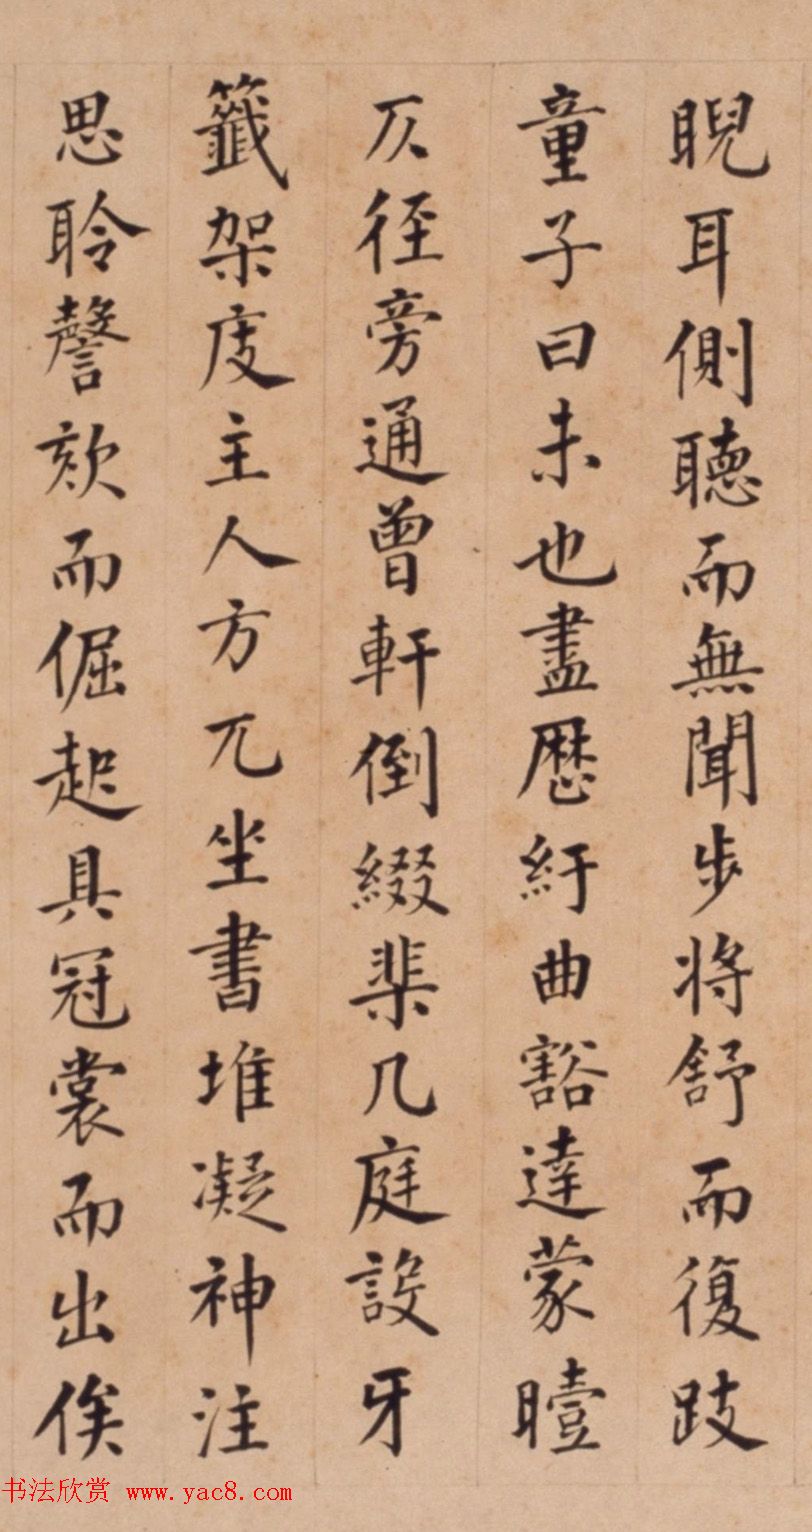 睨耳側聽而無聞步將舒而復跂
童子曰未也盡歷紆曲豁達蒙曀
仄徑旁通曾軒倒綴棐几庭設牙
籤架庋主人方兀坐書堆凝神注
思聆謦欬而倔起具冠裳而出俟
书法欣赏 www.yac8.com